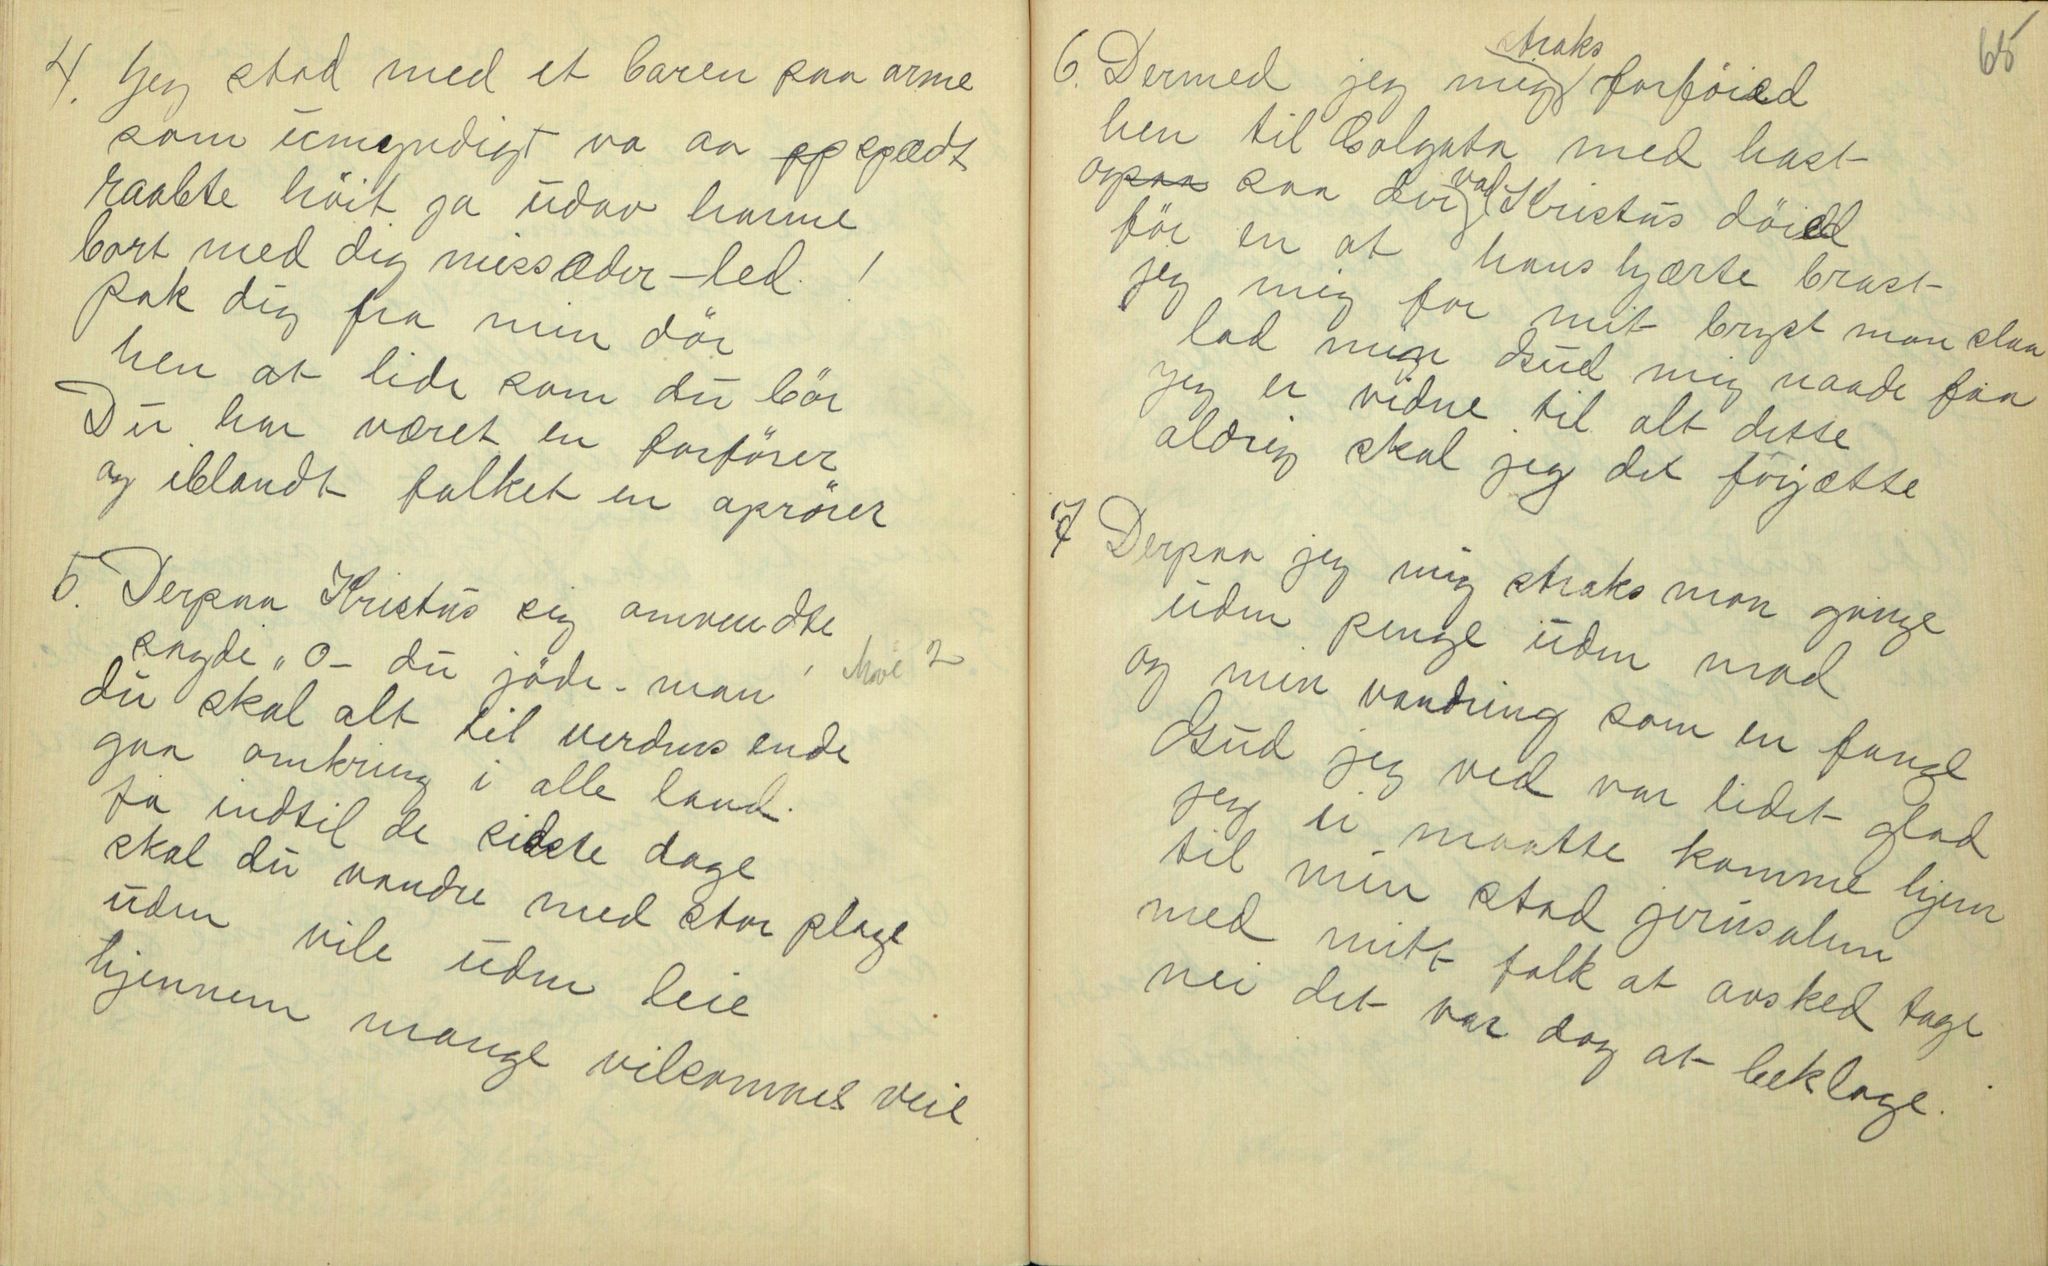 4. Jeg stod med et baren paa arme
som umyndigt va aa spædt
raabte höit ja udav harme
bort med dig missæder-led. !
pak dig fra min dör
hen at lide som du bör
Du har været en forförer
og iblandt folket en oprörer
5. Derpaa Kristus sig omvendte
sagde „O- du jöde-man
du skal alt til verdens ende
gaa omkring i alle land.
ja indtil de sidste dage
skal du vandre med stor plage
uden vile uden leie
hjennem mange vilsommes veie
65
straks
6. Dermed jeg mig forföied
hen til Golgata med hast
og saa hvor Kristus döied
för en at hans hjærte brast
jeg mig for mit bryst mon slaa
lad min Gud mig naade faa
jeg er vidne til alt dette
aldrig skal jeg det förjætte
7 Derpaa jeg mig straks mon gange
uden penge uden mad
og min vandring som en fange
Gud jeg ved var lidet glad
jeg ei maatte komme hjem
til min stad jerusalem
med mitt folk at avsked tage
nei det var dog at beklage.